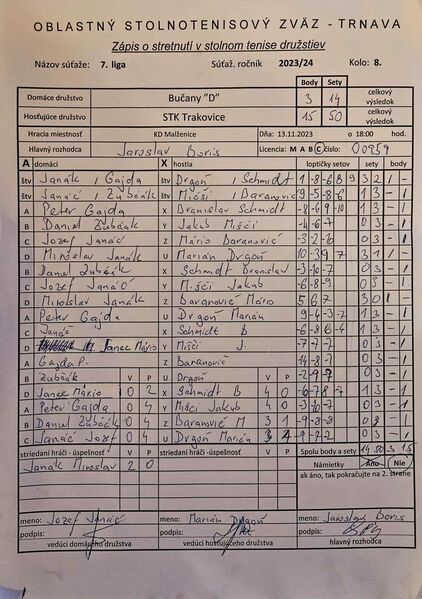 OBLASTNÝ STOLNOTENISOVÝ ZVÄZ - TRNAVA
Zápis o stretnutí v stolnom tenise družstiev
Názov súťaže: 7. liga Súťaž. ročník 2023/24 Kolo: 8.
Body Sety
Domáce družstvo Bučany "D" 3 14 celkový výsledok
Hosťujúce družstvo STK Trakovice 15 50 celkový výsledok
Hracia miestnosť KD Malženice Dňa: 13.11.2023 o 18:00 hod.
Hlavný rozhodca Jaroslav Boris Licencia: M A B C číslo: 00959
A domáci X hostia loptičky setov sety body
štv Janák, Gajda štv Drgoň, Schmidt 1 -8 -6 8 9 3 2 1 -
štv Janáč, Zubčák štv Mišči, Baranovič 9 -5 -8 -6 1 3 - 1
A Peter Gajda X Branislav Schmidt 1 3 - 1
B Daniel Zubčák Y Jakub Mišči -4 -6 -7 0 3 - 1
C Jozef Janáč Z Mário Baranovič -3 -2 0 3 - 1
D Miroslav Janák U Marián Drgoň 3 1 1 -
B Daniel Zubčák X Schmidt Branislav -3 -10 -7 0 3 - 1
C Jozef Janáč Y Mišči Jakub -6 -8 -9 0 3 - 1
D Miroslav Janák Z Baranovič Mário 5 6 7 3 0 1 -
A Peter Gajda U Drgoň Marián 9 -4 -3 -7 1 3 - 1
C Janáč X Schmidt B 1 3 - 1
D Janec Mário Y Mišči J. -7 -7 -7 0 3 - 1
A Gajda P. Z Baranovič 0 3 - 1
B Zubčák V P U Drgoň V P -2 -9 -7 0 3 - 1
D Janec Mário 0 2 X Schmidt B 4 0 1 3 - 1
A Peter Gajda 0 4 Y Mišci Jakub 4 0 -3 -10 -7 0 3 - 1
B Daniel Zubčák 0 4 Z Baranovič M 3 1 0 3 - 1
C Janáč Jozef 0 4 U Drgoň Marián 3 -9 -7 -2 0 3 - 1
striedaní hráči - úspešnosť V P striedaní hráči - úspešnosť V P Spolu body a sety 14 50 3 15
Janák Miroslav 2 0 Námietky Áno Nie
ak áno, tak pokračujte na 2. strane
meno: Jozef Janáč meno: Marián Drgoň meno: Jaroslav Boris
podpis: podpis: podpis:
vedúci domáceho družstva vedúci hosťujúceho družstva hlavný rozhodca